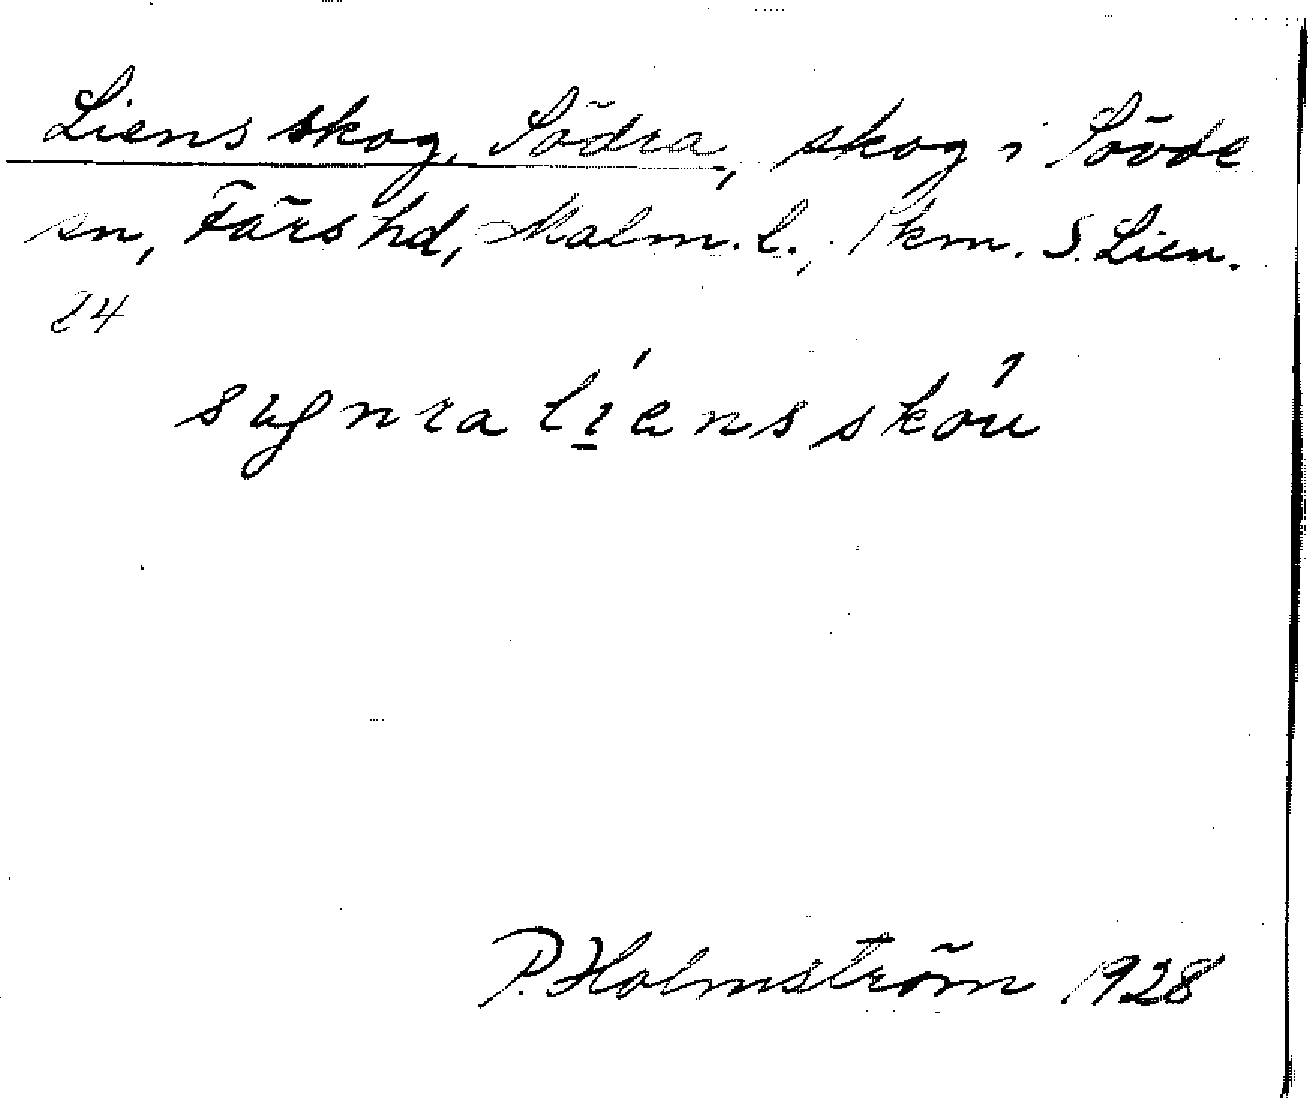 Liens skog, Södra, skog i Sövde
sn, Färs hd, Malm. l., 1 km. S. Lien.
24
sygnra líens skóu
P. Holmström 1928